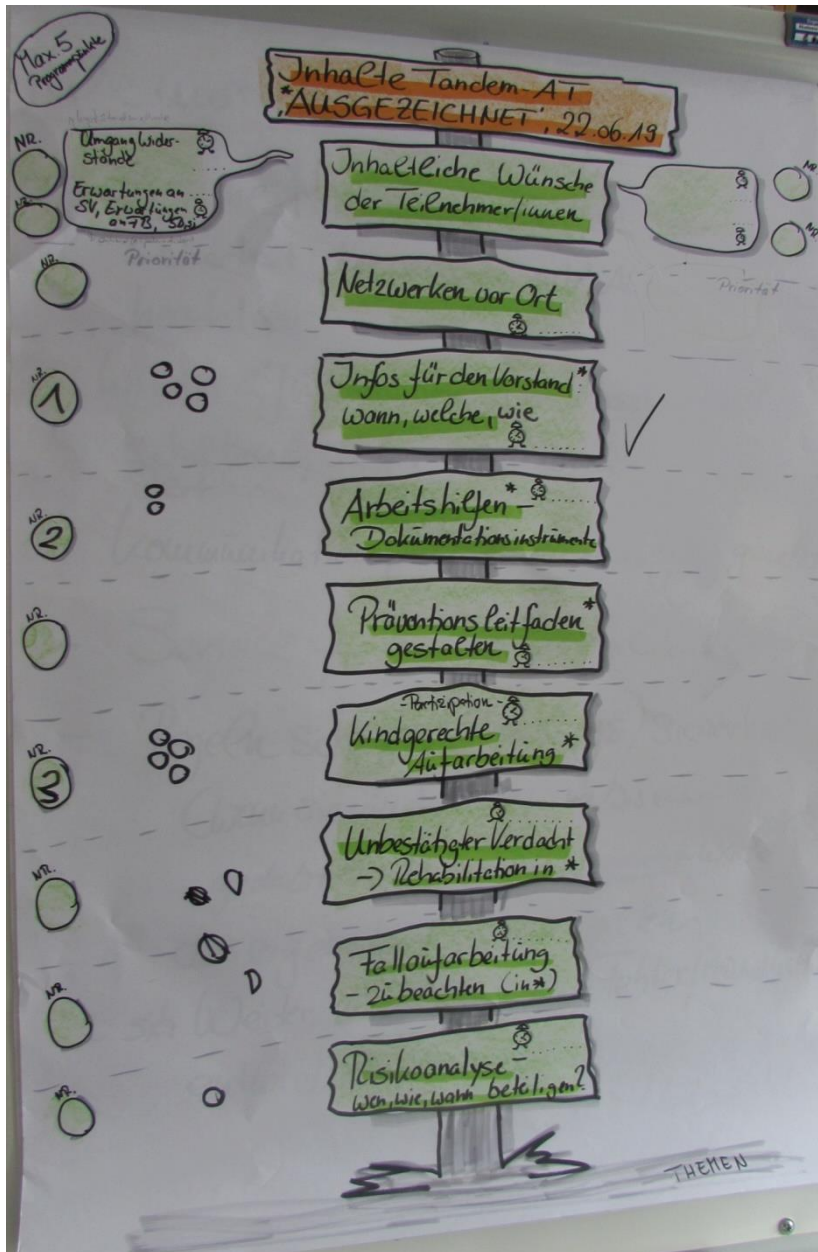 Max. 5
Programmpunkte
Inhalte Tandem-AT
"AUSGEZEICHNET", 22.06.19
NR.
Umgang Wider-
stände
Erwartungen an
SV, Erwartungen
an FB,
NR.
Priorität
Inhaltliche Wünsche
der Teilnehmer/innen
NR.
NR.
Priorität
NR.
Netzwerken vor Ort
NR.
1
Infos für den Vorstand *
wann, welche, wie
NR.
2
Arbeitshilfen * -
Dokumentationsinstrumente
NR.
Präventionsleitfaden *
gestalten
NR.
3
- Partizipation -
Kindgerechte
Aufarbeitung *
NR.
Unbestätigter Verdacht
-> Rehabilitation in *
NR.
Fallaufarbeitung
- zu beachten (in *)
NR.
Risikoanalyse -
wen, wie, wann beteiligen?
THEMEN